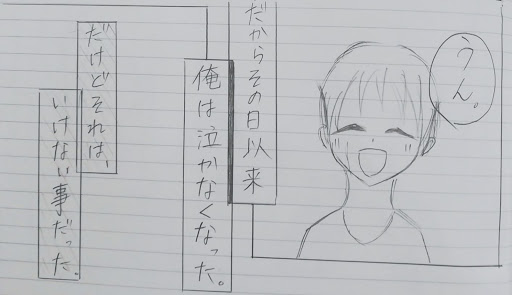 うん。
だからその日以来
俺は泣かなくなった。
だけどそれは、
いけない事だった。